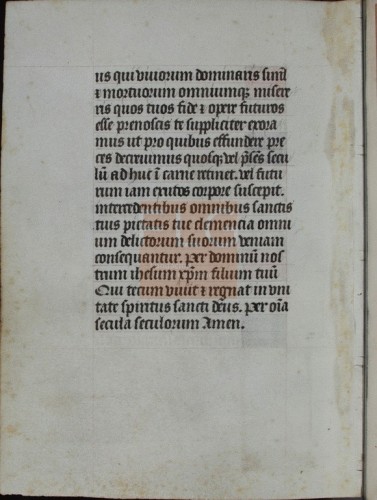 us qui viuorum dominaris simul
⁊ mortuorum omniumqꝫ misere
ris quos tuos fide ⁊ opere futuros
esse prenoscis te suppliciter exora
mus ut pro quibus effundere pre
ces decreuimus quosqꝫ vel pn̄s secu
lū adhuc ī carne retinet. vel futu
rum iam exutos corpore suscepit.
intercedentibus omnibus sanctis
tuis pietatis tue clemencia omni
um delictorum suorum veniam
consequantur. Per dominū nos
trum ihesum xp̄m filium tuū
Qui tecum viuit ⁊ regnat in vni
tate spiritus sancti deus. Per oīa
secula seculorum Amen.